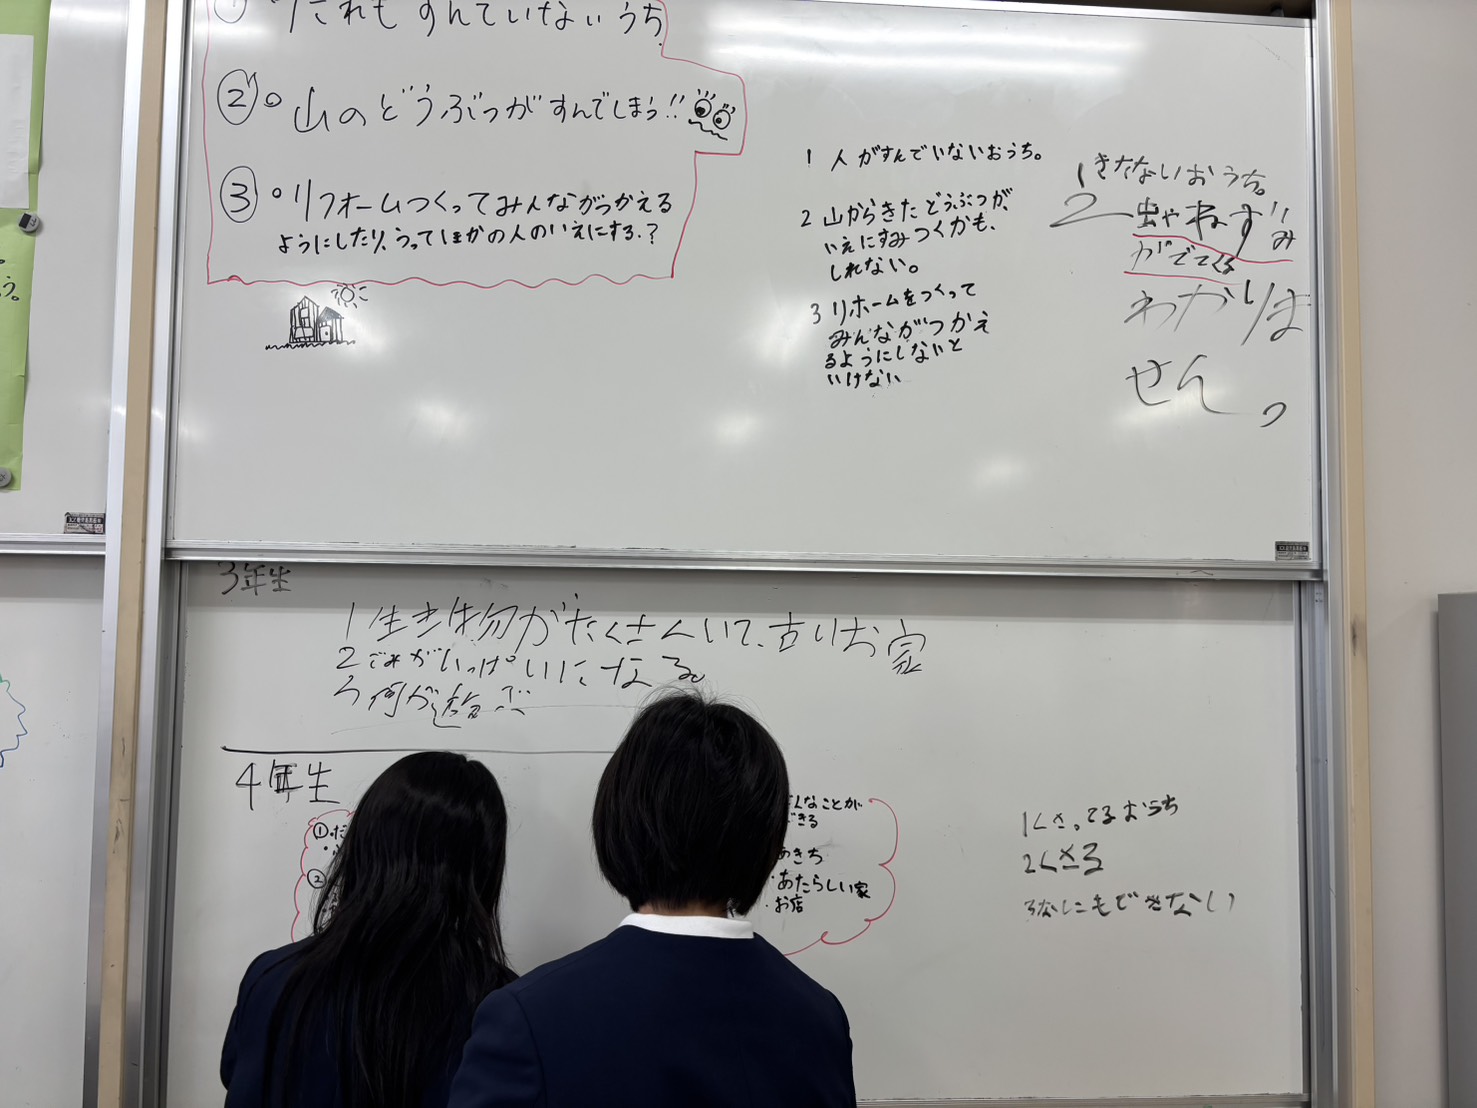 ① だれもすんていないうち
②。山のどうぶつがすんでしまう!!
③。リフォームつくってみんながつかえる
ようにしたり、うってほかの人のいえにする。?
1 人がすんでいないおうち。
2 山からきたどうぶつが、
いえにすみつくかも、
しれない。
3 リホームをつくって
みんながつかえ
るようにしないと
いけない
1 きたないおうち。
2 虫やねずみ
がでてくる
わかりま
せん。
3年生
1 生き物がたくさんいて、古いお家
2 ごみがいっぱいになる。
3 何か遊ぶ
4年生
①・だ
②
んなことが
できる
あきち
・あたらしい家
・お店
1 くさってるおうち
2 くさる
3 なしにもできない